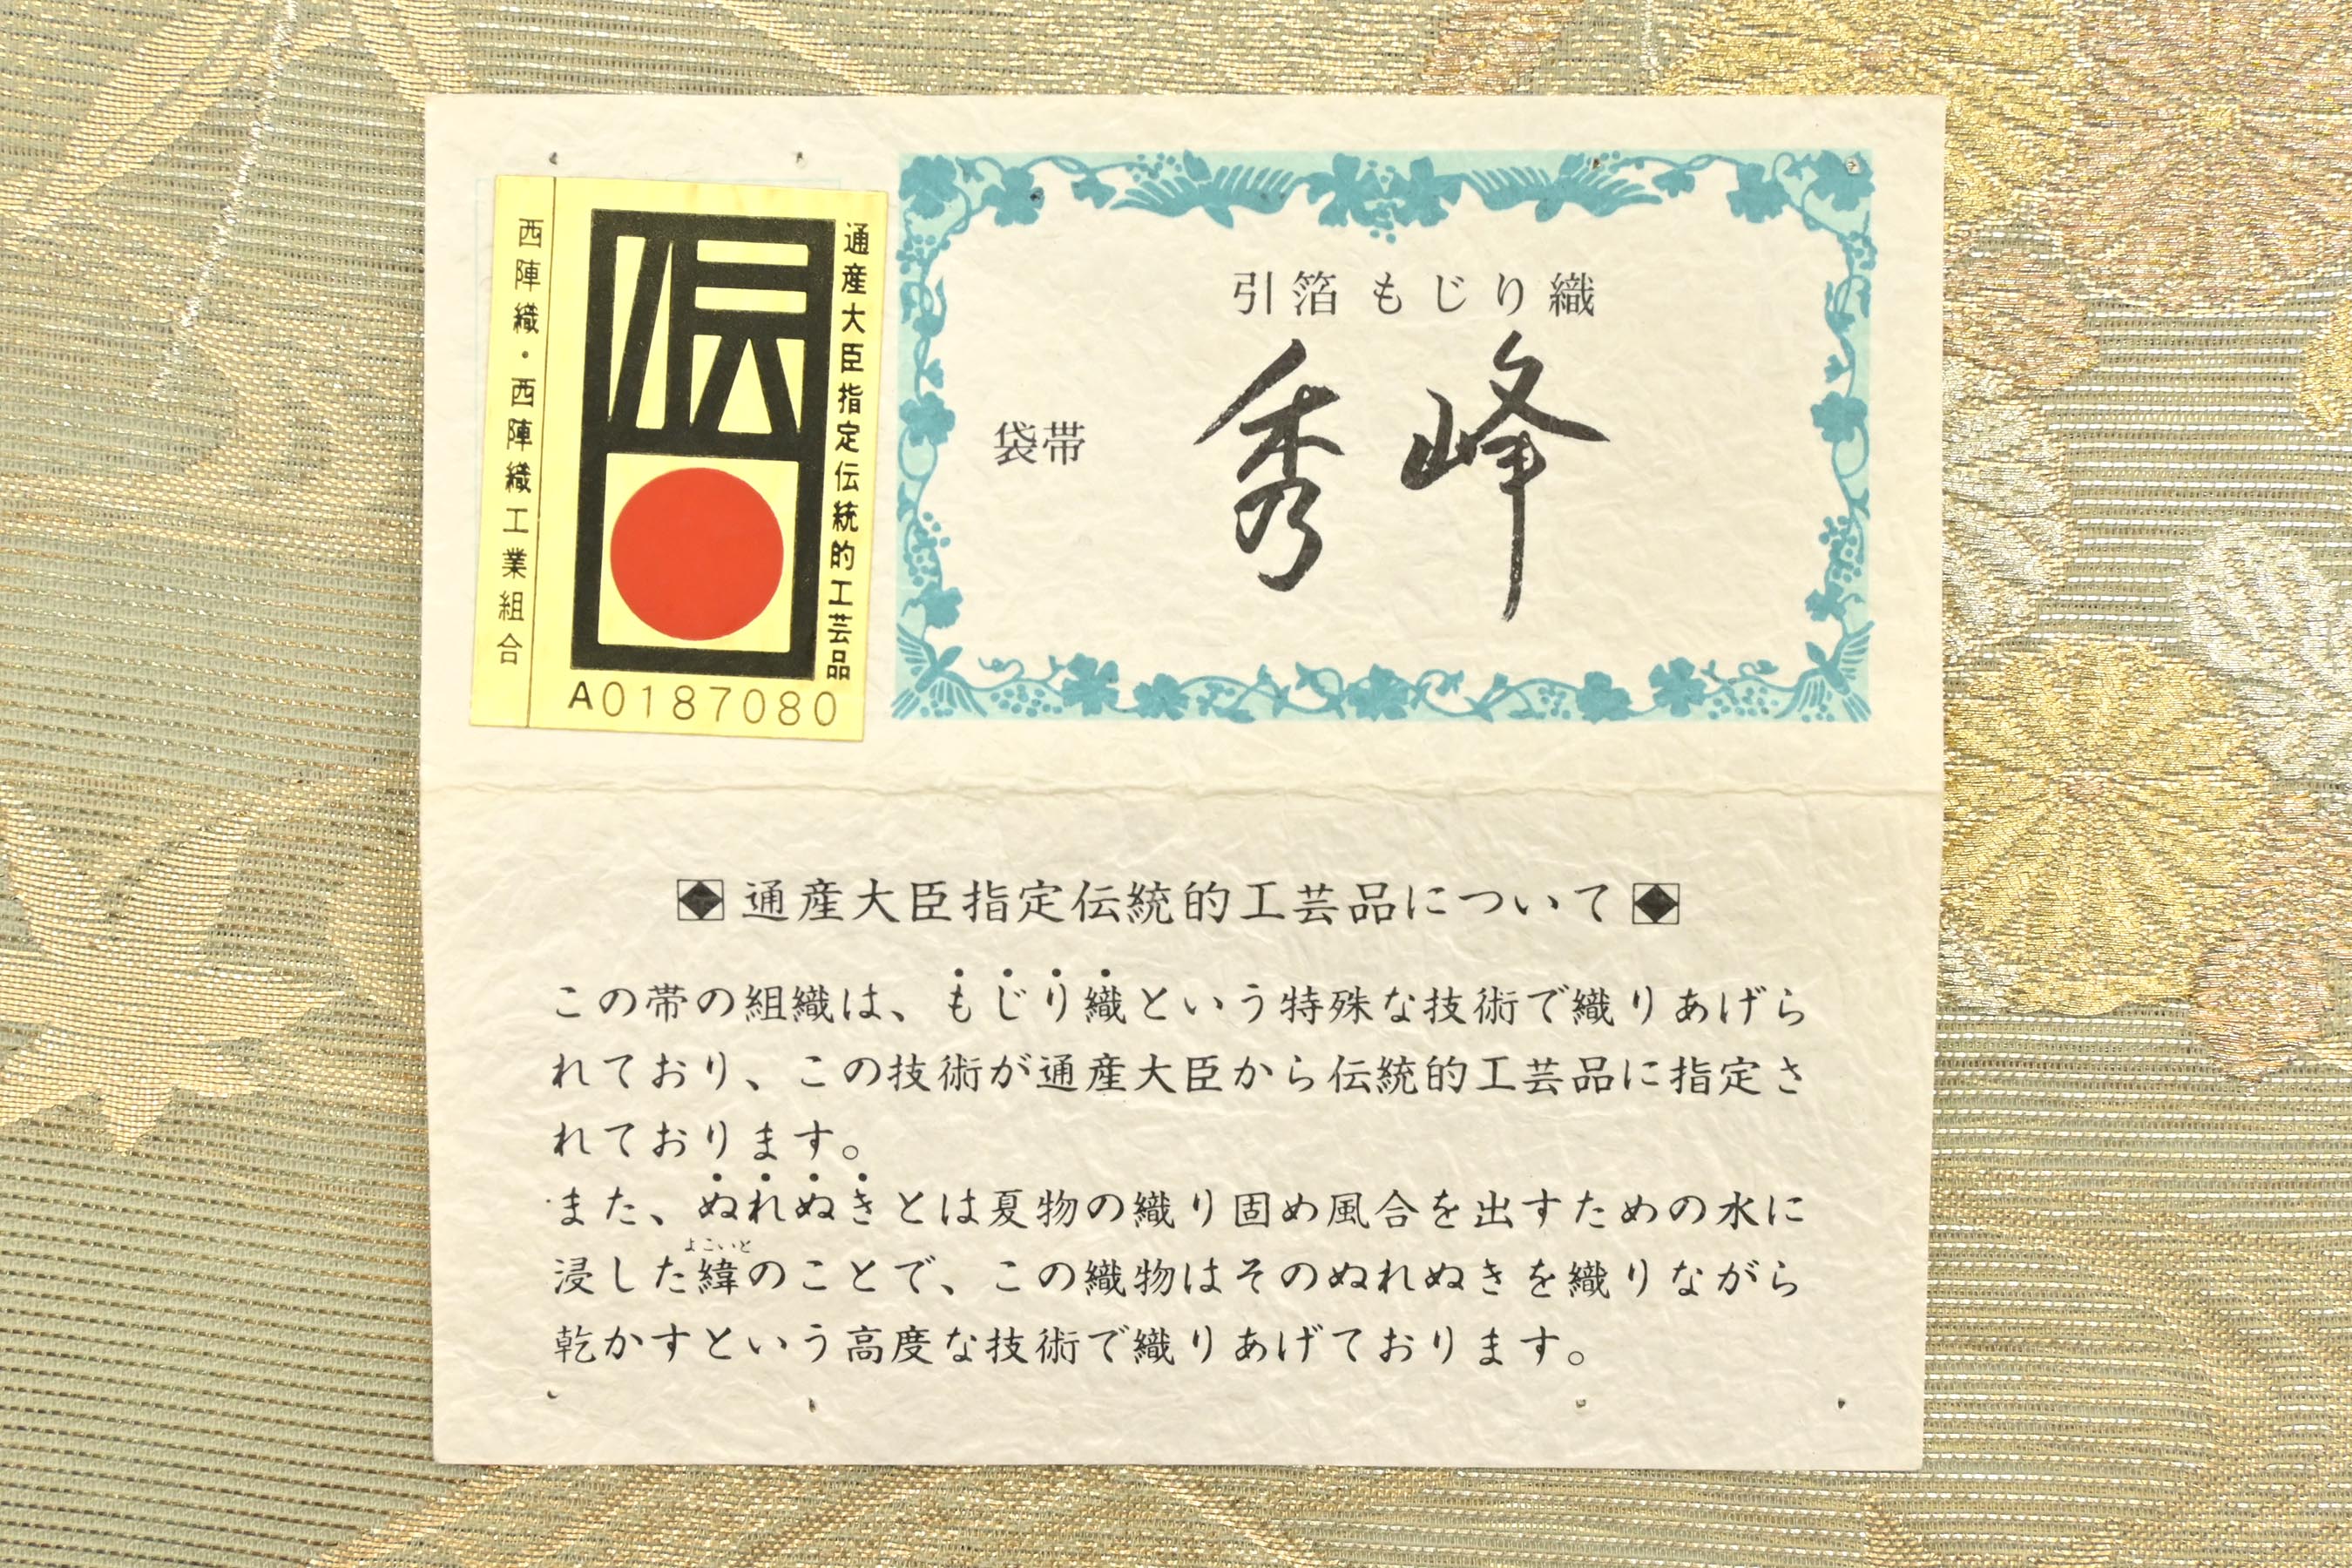 西陣織・西陣織工業組合
伝
通産大臣指定伝統的工芸品
A0187080
引箔 もじり織
秀峰
袋帯
通産大臣指定伝統的工芸品について
この帯の組織は、もじり織という特殊な技術で織りあげら
れており、この技術が通産大臣から伝統的工芸品に指定さ
れております。
また、ぬれぬきとは夏物の織り固め風合を出すための水に
よこいと
浸した緯のことで、この織物はそのぬれぬきを織りながら
乾かすという高度な技術で織りあげております。